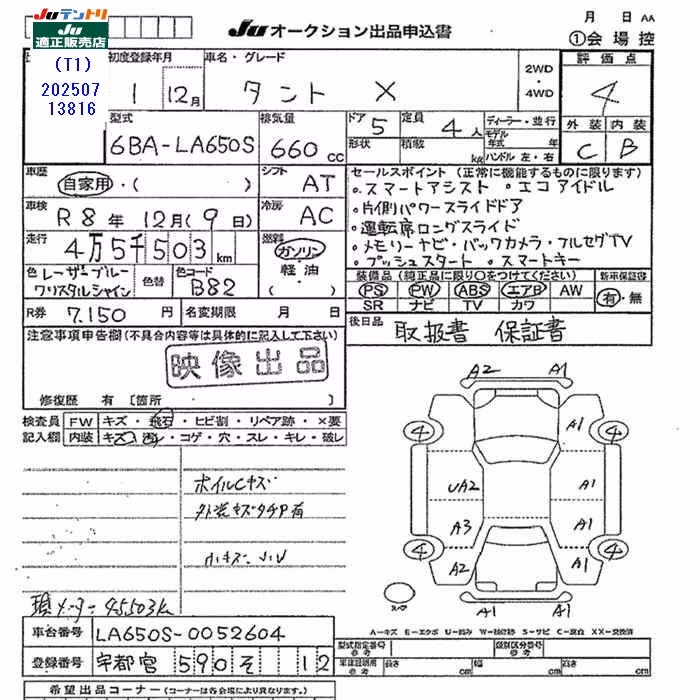 Juテントリ
Ju
適正販売店
(T1)
202507
13816
Juオークション出品申込書
月 日 AA
①会場控
初度登録年月
1 12月
車名・グレード
タント X
2WD
・
4WD
評価点
4
型式
6BA-LA650S
排気量
660 cc
ドア
5
形状
定員
4人
積載
kg
ディーラー・並行
モデル
年式 年
ハンドル 左・右
外装 内装
C B
車歴
自家用・( )
シフト
AT
車検
R8年12月(9日)
冷房
AC
走行
4万5千503km
燃料
ガソリン
軽油
・( )
色 レーザーブルー
クリスタルシャイン
色替
色コード
B82
R券 7.150円
名変期限 月 日
セールスポイント(正常に機能するものに限ります)
・スマートアシスト ・エコアイドル
・片側パワースライドドア
・運転席ロングスライド
・メモリーナビ・バックカメラ・フルセグTV
・プッシュスタート ・スマートキー
装備品(純正品に限り○をつけてください)
PS PW ABS エアB AW
SR ナビ TV カワ
新車保証書
有・無
後日品
取扱書 保証書
注意事項申告欄(不具合内容等は具体的に記入して下さい)
映像出品
修復歴 有〔箇所 〕
検査員
記入欄
FW キズ・飛石・ヒビ割・リペア跡・×要
内装 キズ・汚レ・コゲ・穴・スレ・キレ・破レ
ホイルCキズ
外装キズタチP有
小キズ・
現メーター 45503k
A2 A1
4 A1 4
UA2 A1
A3 A1
4 A2 A1 4
A1 A1
スペア
A=キズ E=エクボ U=凹み W=補修跡 S=サビ C=腐食 XX=交換済
車台番号 LA650S-0052604
登録番号 宇都宮 590 そ 12
型式指定番号
参考
類別区分番号
参考
車庫証明用
参考
長さ cm
幅 cm
高さ cm
希望出品コーナー(コーナーは各会場により異なります。)